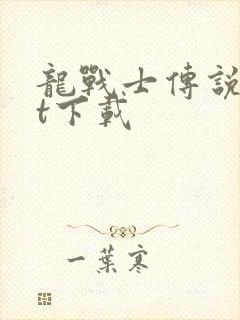 龍戰士傳說
t下載
一葉寒